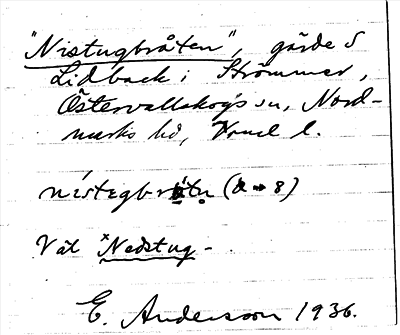 "Nistugbråten", gärde S
Lidback i Strömmer,
Östervallskogs sn, Nord-
marks hd, Vrml l.
nistegbråtn (a → 8)
Väl ˣNedstug-
E. Andersson 1936.